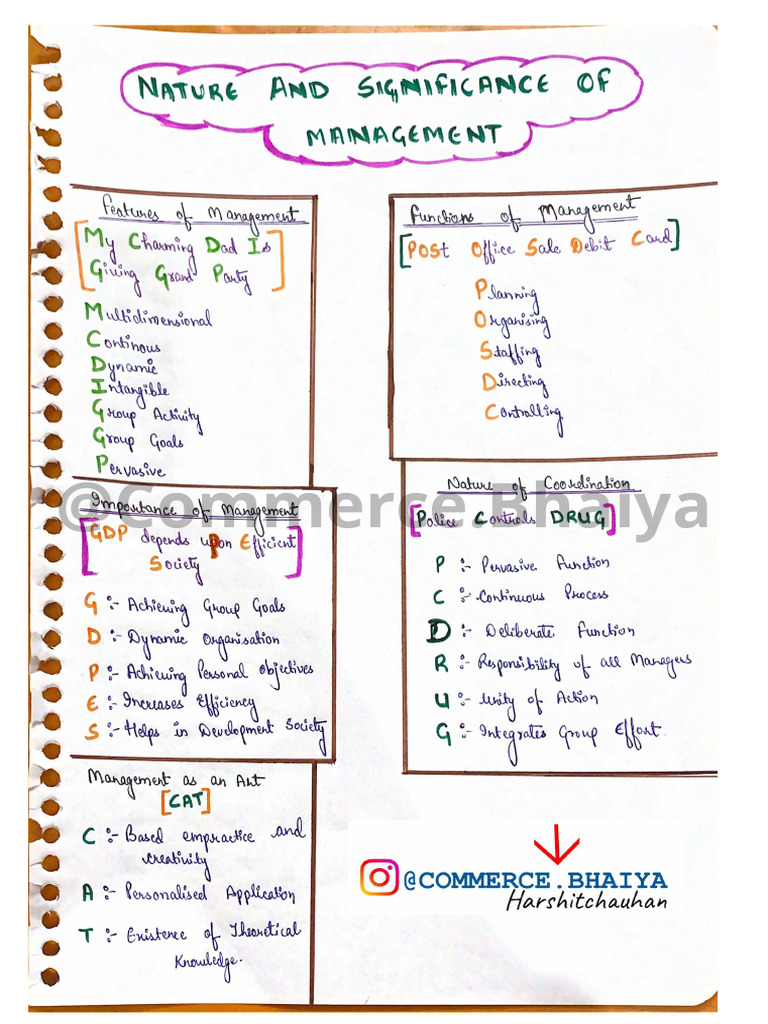 NATURE AND SIGNIFICANCE OF
MANAGEMENT
Features of Management
[My Charming Dad Is
Giving Grand Party]
Multidimensional
Continous
Dynamic
Intangible
Group Activity
Group Goals
Pervasive
Functions of Management
[POSt Office Sale Debit Card]
Planning
Organising
Staffing
Directing
Controlling
Importance of Management
[GDP depends uPon Efficient
Society]
G :- Achieving Group Goals
D :- Dynamic Organisation
P :- Achieving Personal Objectives
E :- Increases Efficiency
S :- Helps in Development Society
Nature of Coordination
[Police Controls DRUG]
P :- Pervasive Function
C :- Continuous Process
D :- Deliberate Function
R :- Responsibility of all Managers
U :- Unity of Action
G :- Integrates Group Effort.
@Commerce.Bhaiya
Management as an Art
[CAT]
C :- Based empractice and
creativity
A :- Personalised Application
T :- Existence of Theoretical
Knowledge.
@COMMERCE.BHAIYA
Harshitchauhan